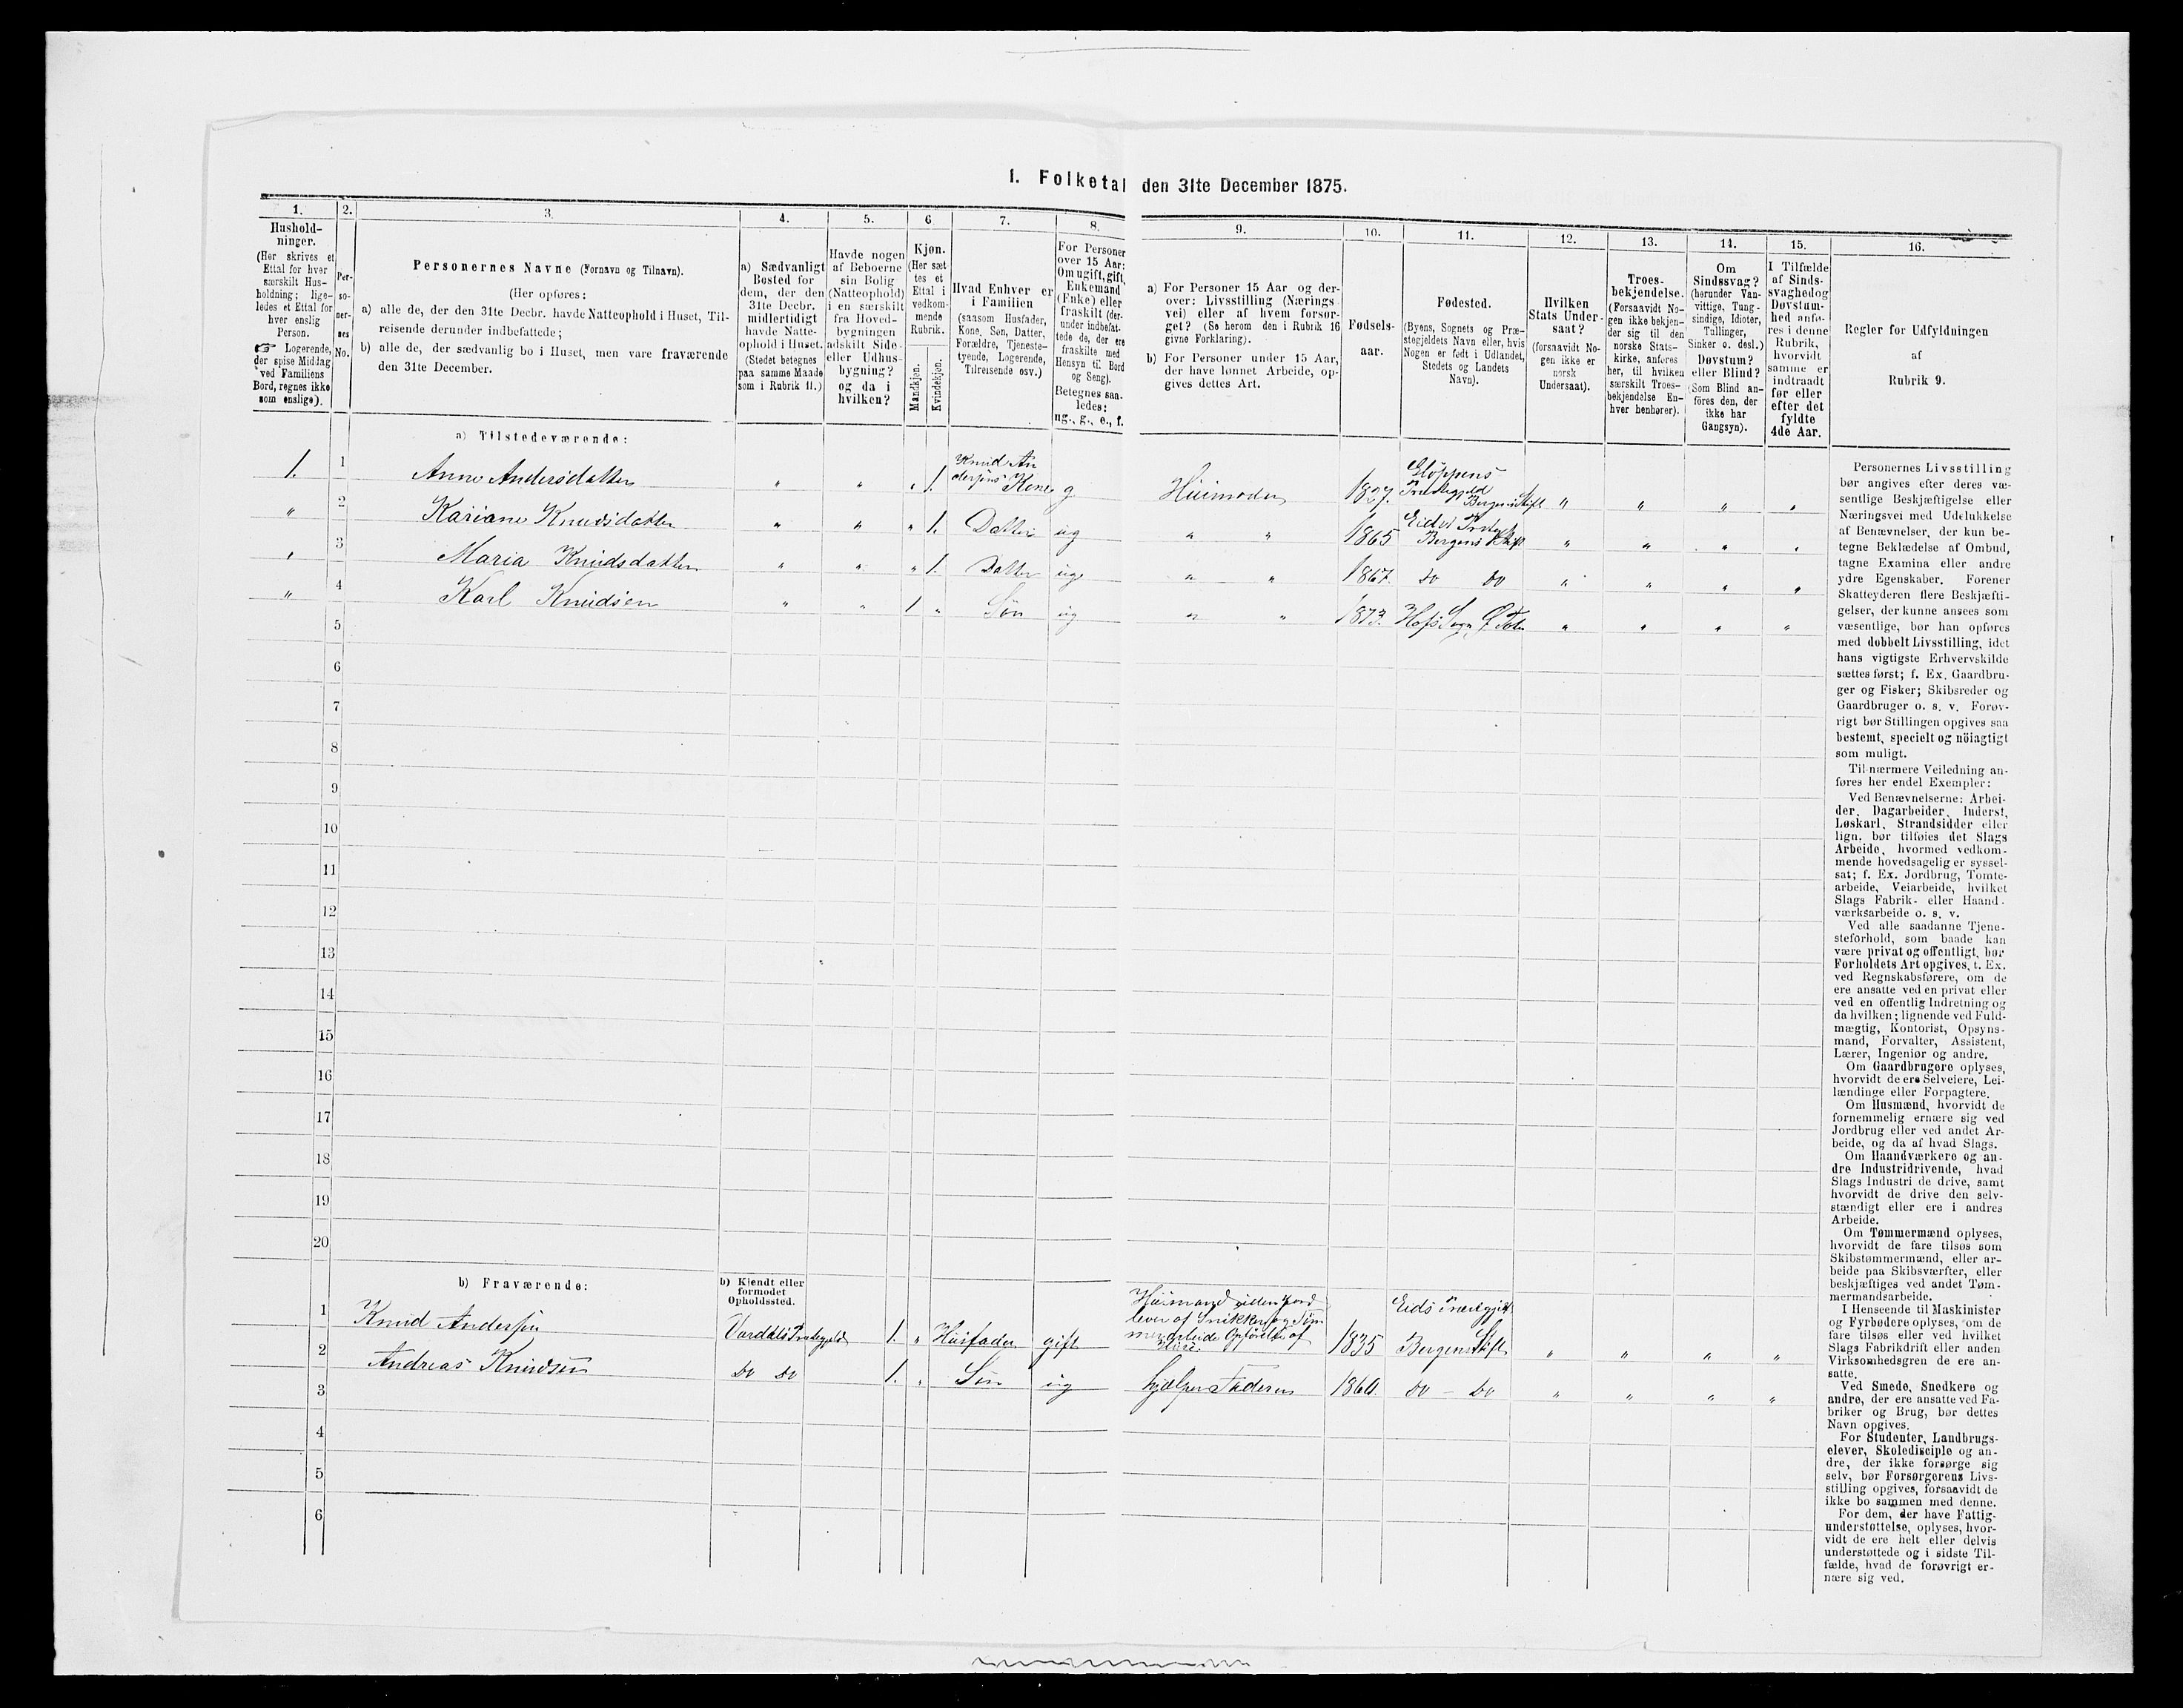 1. Folketal den 31te December 1875.
1. 2. 3. 4. 5. 6 7. 8. 9. 10. 11. 12. 13. 14. 15. 16.
Hushold-
ninger.
(Her skrives et
Ettal for hver
særskilt Hus-
holdning; lige-
ledes et Ettal for
hver enslig
Person.
☞ Logerende,
der spise Middag
ved Familiens
Bord, regnes ikke
som enslige).
Per-
so-
ner-
nes
No.
Personernes Navne (Fornavn og Tilnavn).
(Her opføres:
a) alle de, der den 31te Decbr. havde Natteophold i Huset, Til-
reisende derunder indbefattede;
b) alle de, der sædvanlig bo i Huset, men vare fraværende
den 31te December.
a) Sædvanligt
Bosted for
dem, der den
31te Decbr.
midlertidigt
havde Natte-
ophold i Huset.
(Stedet betegnes
paa samme Maade
som i Rubrik 11.)
Havde nogen
af Beboerne
sin Bolig
(Natteophold)
i en særskilt
fra Hoved-
bygningen
adskilt Side-
eller Udhus-
bygning?
og da i
hvilken?
Kjøn.
(Her sæt
tes et
Ettal i
vedkom-
mende
Rubrik.
Mandkjøn.
Kvindekjøn.
Hvad Enhver er
i Familien
(saasom Husfader,
Kone, Søn, Datter,
Forældre, Tjeneste-
tyende, Logerende,
Tilreisende osv.)
For Personer
over 15 Aar:
Om ugift, gift,
Enkemand
(Enke) eller
fraskilt (der-
under indbefat-
tede de, der ere
fraskilte med
Hensyn til Bord
og Seng).
Betegnes saa-
ledes:
ug., g., e., f.
a) For Personer 15 Aar og der-
over: Livsstilling (Nærings
vei) eller af hvem forsør-
get? (Se herom den i Rubrik 16
givne Forklaring).
b) For Personer under 15 Aar,
der have lønnet Arbeide, op-
gives dettes Art.
Fødsels-
aar.
Fødested.
(Byens, Sognets og Præ-
stegjeldets Navn eller, hvis
Nogen er født i Udlandet,
Stedets og Landets
Navn).
Hvilken
Stats Under-
saat?
(forsaavidt No-
gen ikke er
norsk
Undersaat).
Troes-
bekjendelse.
(Forsaavidt No-
gen ikke bekjen-
der sig til den
norske Stats-
kirke, anføres
her, til hvilken
særskilt Troes-
bekjendelse En-
hver henhører).
Om
Sindssvag?
(herunder Van-
vittige, Tung-
sindige, Idioter,
Tullinger,
Sinker o. desl.)
Døvstum?
eller Blind?
(Som Blind an-
føres den, der
ikke har
Gangsyn).
I Tilfælde
af Sinds-
svaghed og
Døvstum-
hed anfø-
res i denne
Rubrik,
hvorvidt
samme er
indtraadt
før eller
efter det
fyldte
4de Aar.
Regler for Udfyldningen
af
Rubrik 9.
a) Tilstedeværende:
1. 1 Anne Andersdatter " " " 1. Knud An
dersens Kone g Huusmoder 1827. Gloppens
Præstegjeld
Bergens Stift " " " "
" 2 Kariane Knudsdatter " " " 1. Datter ug " " 1865 Eids Præstegj
Bergens Stift " " " "
" 3 Maria Knudsdatter " " " 1. Datter ug " " 1867. Do Do " " " "
" 4 Karl Knudsen " " 1 " Søn ug " " 1873. Hofs Sogn Ø. Toten " " " "
5
6
7
8
9
10
11
12
13
14
15
16
17
18
19
20
b) Fraværende:
b) Kjendt eller
formodet
Opholdssted.
1 Knud Andersen Vardals Præstegjeld 1. " Huusfader gift Huusmand uden Jord
lever af Snikker og Tøm
merarbeide Opførelse af
Huse 1835 Eids Præstegjeld
Bergens Stift " " " "
2 Andreas Knudsen Do Do 1. " Søn ug hjælper Faderen 1860. Do - Do " " " "
3
4
5
6
Personernes Livsstilling
bør angives efter deres væ-
sentlige Beskjæftigelse eller
Næringsvei med Udelukkelse
af Benævnelser, der kun be-
tegne Beklædelse af Ombud,
tagne Examina eller andre
ydre Egenskaber. Forener
Skatteyderen flere Beskjæfti-
gelser, der kunne ansees som
væsentlige, bør han opføres
med dobbelt Livsstilling, idet
hans vigtigste Erhvervskilde
sættes først; f. Ex. Gaardbru-
ger og Fisker; Skibsreder og
Gaardbruger o. s. v. Forøv-
rigt bør Stillingen opgives saa
bestemt, specielt og nöiagtigt
som muligt.
Til nærmere Veiledning an-
føres her endel Exempler:
Ved Benævnelserne: Arbei-
der, Dagarbeider, Inderst,
Løskarl, Strandsidder eller
lign. bør tilføies det Slags
Arbeide, hvormed vedkom-
mende hovedsagelig er syssel-
sat; f. Ex. Jordbrug, Tomte-
arbeide, Veiarbeide, hvilket
Slags Fabrik- eller Haand-
værksarbeide o. s. v.
Ved alle saadanne Tjene-
steforhold, som baade kan
være privat og offentligt, bør
Forholdets Art opgives, t. Ex.
ved Regnskabsførere, om de
ere ansatte ved en privat eller
ved en offentlig Indretning og
da hvilken; lignende ved Fuld-
mægtig, Kontorist, Opsyns-
mand, Forvalter, Assistent,
Lærer, Ingeniør og andre.
Om Gaardbrugere oplyses,
hvorvidt de ere Selveiere, Lei-
lændinge eller Forpagtere.
Om Husmænd, hvorvidt de
fornemmelig ernære sig ved
Jordbrug eller ved andet Ar-
beide, og da af hvad Slags.
Om Haandværkere og an-
dre Industridrivende, hvad
Slags Industri de drive, samt
hvorvidt de drive den selv-
stændigt eller ere i andres
Arbeide.
Om Tømmermænd oplyses,
hvorvidt de fare tilsøs som
Skibstømmermænd, eller ar-
beide paa Skibsværfter, eller
beskjæftiges ved andet Tøm-
mermandsarbeide.
I Henseende til Maskinister
og Fyrbødere oplyses, om de
fare tilsøs eller ved hvilket
Slags Fabrikdrift eller anden
Virksomhedsgren de ere an-
satte.
Ved Smede, Snedkere og
andre, der ere ansatte ved Fa-
briker og Brug, bør dettes
Navn opgives.
For Studenter, Landbrugs-
elever, Skoledisciple og an-
dre, der ikke forsørge sig
selv, bør Forsørgerens Livs-
stilling opgives, forsaavidt de
ikke bo sammen med denne.
For dem, der have Fattig-
understøttelse, oplyses, hvor-
vidt de ere helt eller delvis
understøttede og i sidste Til-
fælde, hvad de forøvrigt er-
nære sig ved.